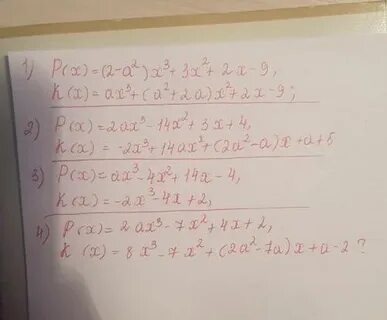 1) P(x)=(2-a²)x³+3x²+2x-9,
K(x)=ax³+(a²+2a)x²+2x-9;
2) P(x)=2ax³-14x²+3x+4,
K(x)=-2x³+14ax²+(2a²-a)x+a+5
3) P(x)=ax³-4x²+14x-4,
K(x)=-2x³-4x+2,
4) P(x)=2ax³-7x²+4x+2,
K(x)=8x³-7x²+(2a²-7a)x+a-2?